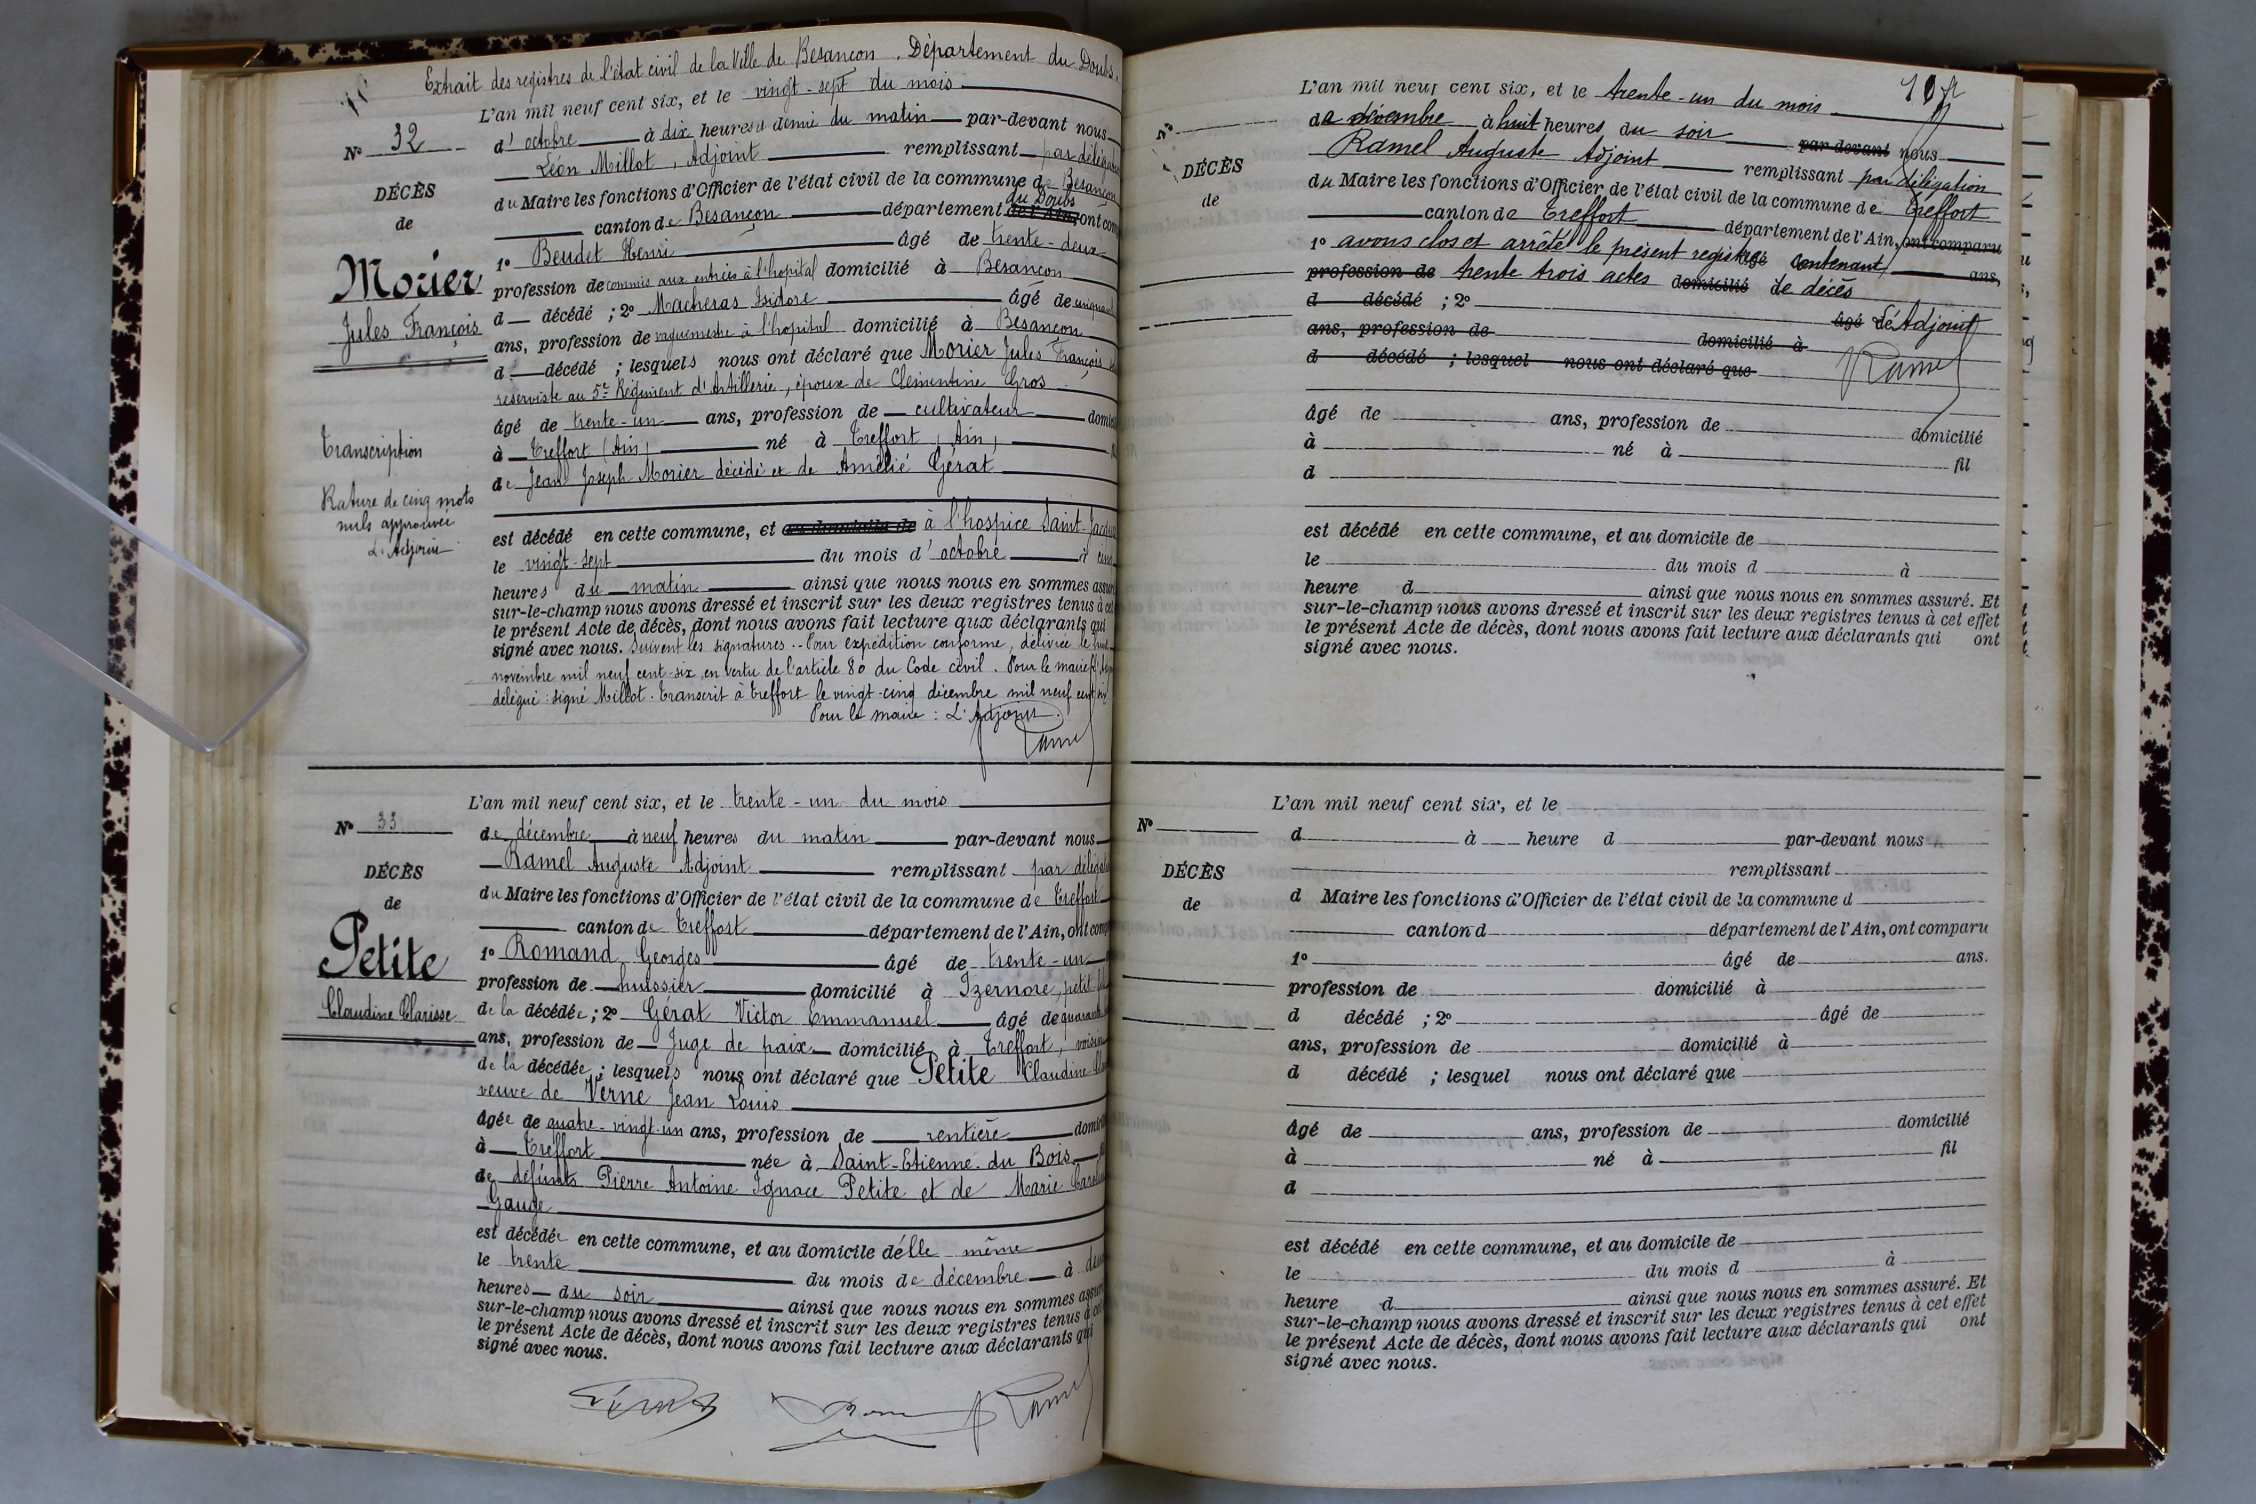 Extrait des registres de l'état civil de la Ville de Besançon. Département du Doubs.
L'an mil neuf cent six, et le vingt-sept du mois
N° 32
d'octobre à dix heures et demie du matin par-devant nous
Léon Millot, Adjoint remplissant par délégation
DÉCÈS
du Maire les fonctions d'Officier de l'état civil de la commune de Besançon
de
canton de Besançon département de l'Ain, du Doubs ont com
Morier
Jules François
1° Beudet Henri âgé de trente-deux
profession de commis aux entrées à l'hopital domicilié à Besançon
d décédé ; 2° Macheras Isidore âgé de cinquante
ans, profession de vaguemestre à l'hopital domicilié à Besançon
d décédé ; lesquels nous ont déclaré que Morier Jules François
réserviste au 5e Régiment d'Artillerie, époux de Clémentine Gros
âgé de trente-un ans, profession de cultivateur domi
Transcription
à Treffort (Ain) né à Treffort, Ain,
de Jean Joseph Morier décédé et de Amélie Gérat
Rature de cinq mots
nuls approuvée
L'Adjoint
est décédé en cette commune, et au domicile de à l'hospice Saint-Jacques
le vingt-sept du mois d'octobre à cinq
heures du matin ainsi que nous nous en sommes assuré
sur-le-champ nous avons dressé et inscrit sur les deux registres tenus à cet
le présent Acte de décès, dont nous avons fait lecture aux déclarants qui
signé avec nous. Suivent les signatures.. Pour expédition conforme, délivrée le huit
novembre mil neuf cent six, en vertu de l'article 80 du Code civil. Pour le maire
délégué : signé Millot. Transcrit à Treffort le vingt-cinq décembre mil neuf cent six
Pour le maire : L'Adjoint.
Ramel
L'an mil neuf cent six, et le trente-un du mois
N° 33
de décembre à neuf heures du matin par-devant nous
Ramel Auguste Adjoint remplissant par délégation
DÉCÈS
du Maire les fonctions d'Officier de l'état civil de la commune de Treffort
de
canton de Treffort département de l'Ain, ont comp
Petite
Claudine Clarisse
1° Romand Georges âgé de trente-un
profession de huissier domicilié à Izernore, petit fils
de la décédée ; 2° Gérat Victor Emmanuel âgé de quarante
ans, profession de Juge de paix domicilié à Treffort, voisin
de la décédée ; lesquels nous ont déclaré que Petite Claudine
veuve de Verne Jean Louis
âgée de quatre-vingt-un ans, profession de rentière domici
à Treffort née à Saint-Etienne-du Bois
de défunts Pierre Antoine Ignace Petite et de Marie
Gauge
est décédée en cette commune, et au domicile d'elle même
le trente du mois de décembre à deux
heures du soir ainsi que nous nous en sommes assuré
sur-le-champ nous avons dressé et inscrit sur les deux registres tenus à cet
le présent Acte de décès, dont nous avons fait lecture aux déclarants qui
signé avec nous.
Ramel
L'an mil neuf cent six, et le trente-un du mois
N°
de décembre à huit heures du soir par-devant nous
Ramel Auguste Adjoint remplissant par délégation
DÉCÈS
du Maire les fonctions d'Officier de l'état civil de la commune de Treffort
de
canton de Treffort département de l'Ain, ont comparu
1° avons clos et arrêté le présent registre âgé contenant ans,
profession de trente trois actes domicilié de décès
d décédé ; 2° âgé L'Adjoint
ans, profession de domicilié à
d décédé ; lesquel nous ont déclaré que
Ramel
âgé de ans, profession de domicilié
à né à fil
d
est décédé en cette commune, et au domicile de
le du mois d à
heure d ainsi que nous nous en sommes assuré. Et
sur-le-champ nous avons dressé et inscrit sur les deux registres tenus à cet effet
le présent Acte de décès, dont nous avons fait lecture aux déclarants qui ont
signé avec nous.
L'an mil neuf cent six, et le
N°
d à heure d par-devant nous
remplissant
DÉCÈS
d Maire les fonctions d'Officier de l'état civil de la commune d
de
canton d département de l'Ain, ont comparu
1° âgé de ans.
profession de domicilié à
d décédé ; 2° âgé de
ans, profession de domicilié à
d décédé ; lesquel nous ont déclaré que
âgé de ans, profession de domicilié
à né à fil
d
est décédé en cette commune, et au domicile de
le du mois d à
heure d ainsi que nous nous en sommes assuré. Et
sur-le-champ nous avons dressé et inscrit sur les deux registres tenus à cet effet
le présent Acte de décès, dont nous avons fait lecture aux déclarants qui ont
signé avec nous.